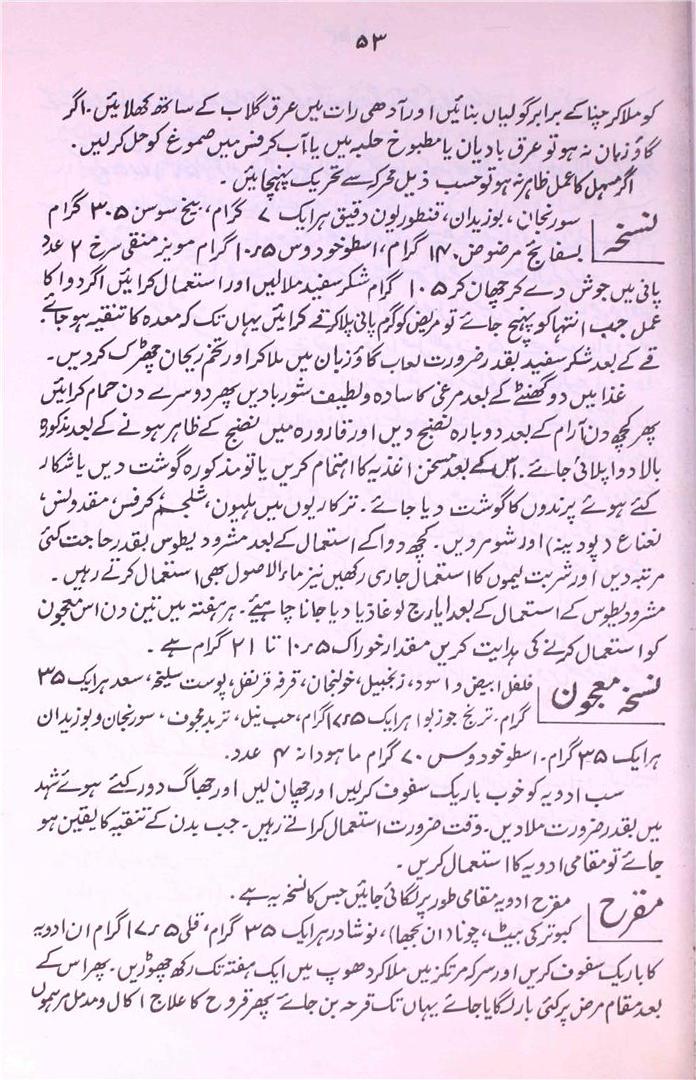 ۵۳
کو ملا کر چنا کے برابر گولیاں بنائیں اور آدھی رات میں عرق گلاب کے ساتھ کھلائیں۔ اگر
گاؤ زبان نہ ہو تو عرق بادیان یا مطبوخ حلبہ میں یا آب کرفس میں صموغ کو حل کر لیں۔
اگر مسہل کا عمل ظاہر نہ ہو تو حسب ذیل محرک سے تحریک پہنچائیں۔
نسخہ سورنجان، بوزیدان، قنطوریون دقیق ہر ایک ۷ گرام، بیخ سوسن ۳۰۵ گرام
بسفائج مرضوض ۱۴۰ گرام، اسطوخودوس ۱۰٫۵ گرام مویز منقی سرخ ۲ عدد
پانی میں جوش دے کر چھان کر ۱۰۵ گرام شکر سفید ملا لیں اور استعمال کرائیں اگر دوا کا
عمل جب انتہا کو پہنچ جائے تو مریض کو گرم پانی پلا کر قے کرائیں یہاں تک کہ معدہ کا تنقیہ ہو جائے
قے کے بعد شکر سفید بقدر ضرورت لعاب گاؤ زبان میں ملا کر اور تخم ریحان چھڑک کر دیں۔
غذا میں دو گھنٹے کے بعد مرغی کا سادہ و لطیف شوربا دیں پھر دوسرے دن حمام کرائیں
پھر کچھ دن آرام کے بعد دوبارہ نضج دیں اور قارورہ میں نضج کے ظاہر ہونے کے بعد مذکورہ
بالا دوا پلائی جائے۔ اس کے بعد مسخن اغذیہ کا اہتمام کریں یا تو مذکورہ گوشت دیں یا شکار
کئے ہوئے پرندوں کا گوشت دیا جائے۔ ترکاریوں میں ہلیون، شلجم، کرفس، مقدولس،
نعناع (پودینہ) اور شوم دیں۔ کچھ دوا کے استعمال کے بعد مشرودیطوس بقدر حاجت کئی
مرتبہ دیں اور شربت لیموں کا استعمال جاری رکھیں نیز ماء الاصول بھی استعمال کرتے رہیں۔
مشرودیطوس کے استعمال کے بعد ایارج لوغاذیا دیا جانا چاہیئے۔ ہر ہفتہ میں تین دن اس معجون
کو استعمال کرنے کی ہدایت کریں مقدار خوراک ۱۰٫۵ تا ۲۱ گرام ہے۔
نسخہ معجون فلفل ابیض و اسود، زنجبیل، خولنجان، قرفہ قرنفل، پوست سلیخہ، سعد ہر ایک ۳۵
گرام۔ ترنج جوزبوا ہر ایک ۱۷٫۵ گرام، حب نیل، تربد مجوف، سورنجان و بوزیدان
ہر ایک ۳۵ گرام۔ اسطوخودوس ۷۰ گرام ماہودانہ ۴ عدد۔
سب ادویہ کو خوب باریک سفوف کر لیں اور چھان لیں اور جھاگ دور کئے ہوئے شہد
میں بقدر ضرورت ملا دیں۔ وقت ضرورت استعمال کراتے رہیں۔ جب بدن کے تنقیہ کا یقین ہو
جائے تو مقامی ادویہ کا استعمال کریں۔
مقرح مقرح ادویہ مقامی طور پر لگائی جائیں جس کا نسخہ یہ ہے۔
کبوتر کی بیٹ، چونا (ان بجھا)، نوشادر ہر ایک ۳۵ گرام، قلی ۱۷٫۵ گرام ان ادویہ
کا باریک سفوف کریں اور سرکہ مرتکز میں ملا کر دھوپ میں ایک ہفتہ تک رکھ چھوڑیں۔ پھر اس کے
بعد مقام مرض پر کئی بار لگایا جائے یہاں تک قرحہ بن جائے پھر قروح کا علاج اکال و مدمل مرہموں